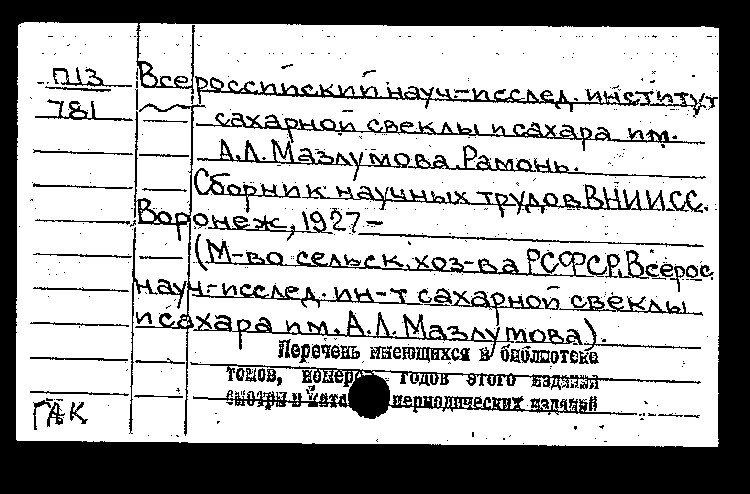 П13 Всероссийский науч-исслед. институт
781 сахарной свеклы и сахара им.
А.Л. Мазлумова. Рамонь.
Сборник научных трудов ВНИИСС.
Воронеж, 1927-
(М-во сельск. хоз-ва РСФСР. Всерос.
науч-исслед. ин-т сахарной свеклы
и сахара им. А.Л. Мазлумова).
Перечень имеющихся в библиотеке
томов, номеров годов этого издания
смотри в ката периодических изданий
ГАК